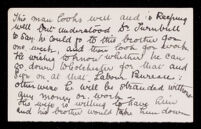 This man looks well and is keeping
well but understood Dr Turnbull
to say he could go to this brother for
one week, and then look for work
He wishes to know whether he can
go down to Colchester for Mar and
sign on at that Labour Bureau;
otherwise he will be stranded without
any money or work.
His wife is willing to have him
and his brother would take him down